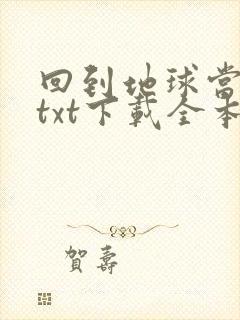 回到地球当
txt下载全本
賀壽